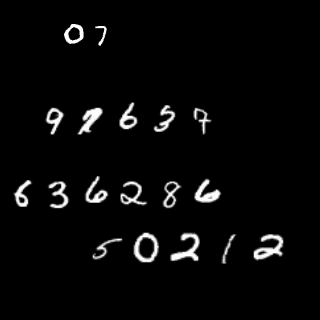 07
91657
636286
50212